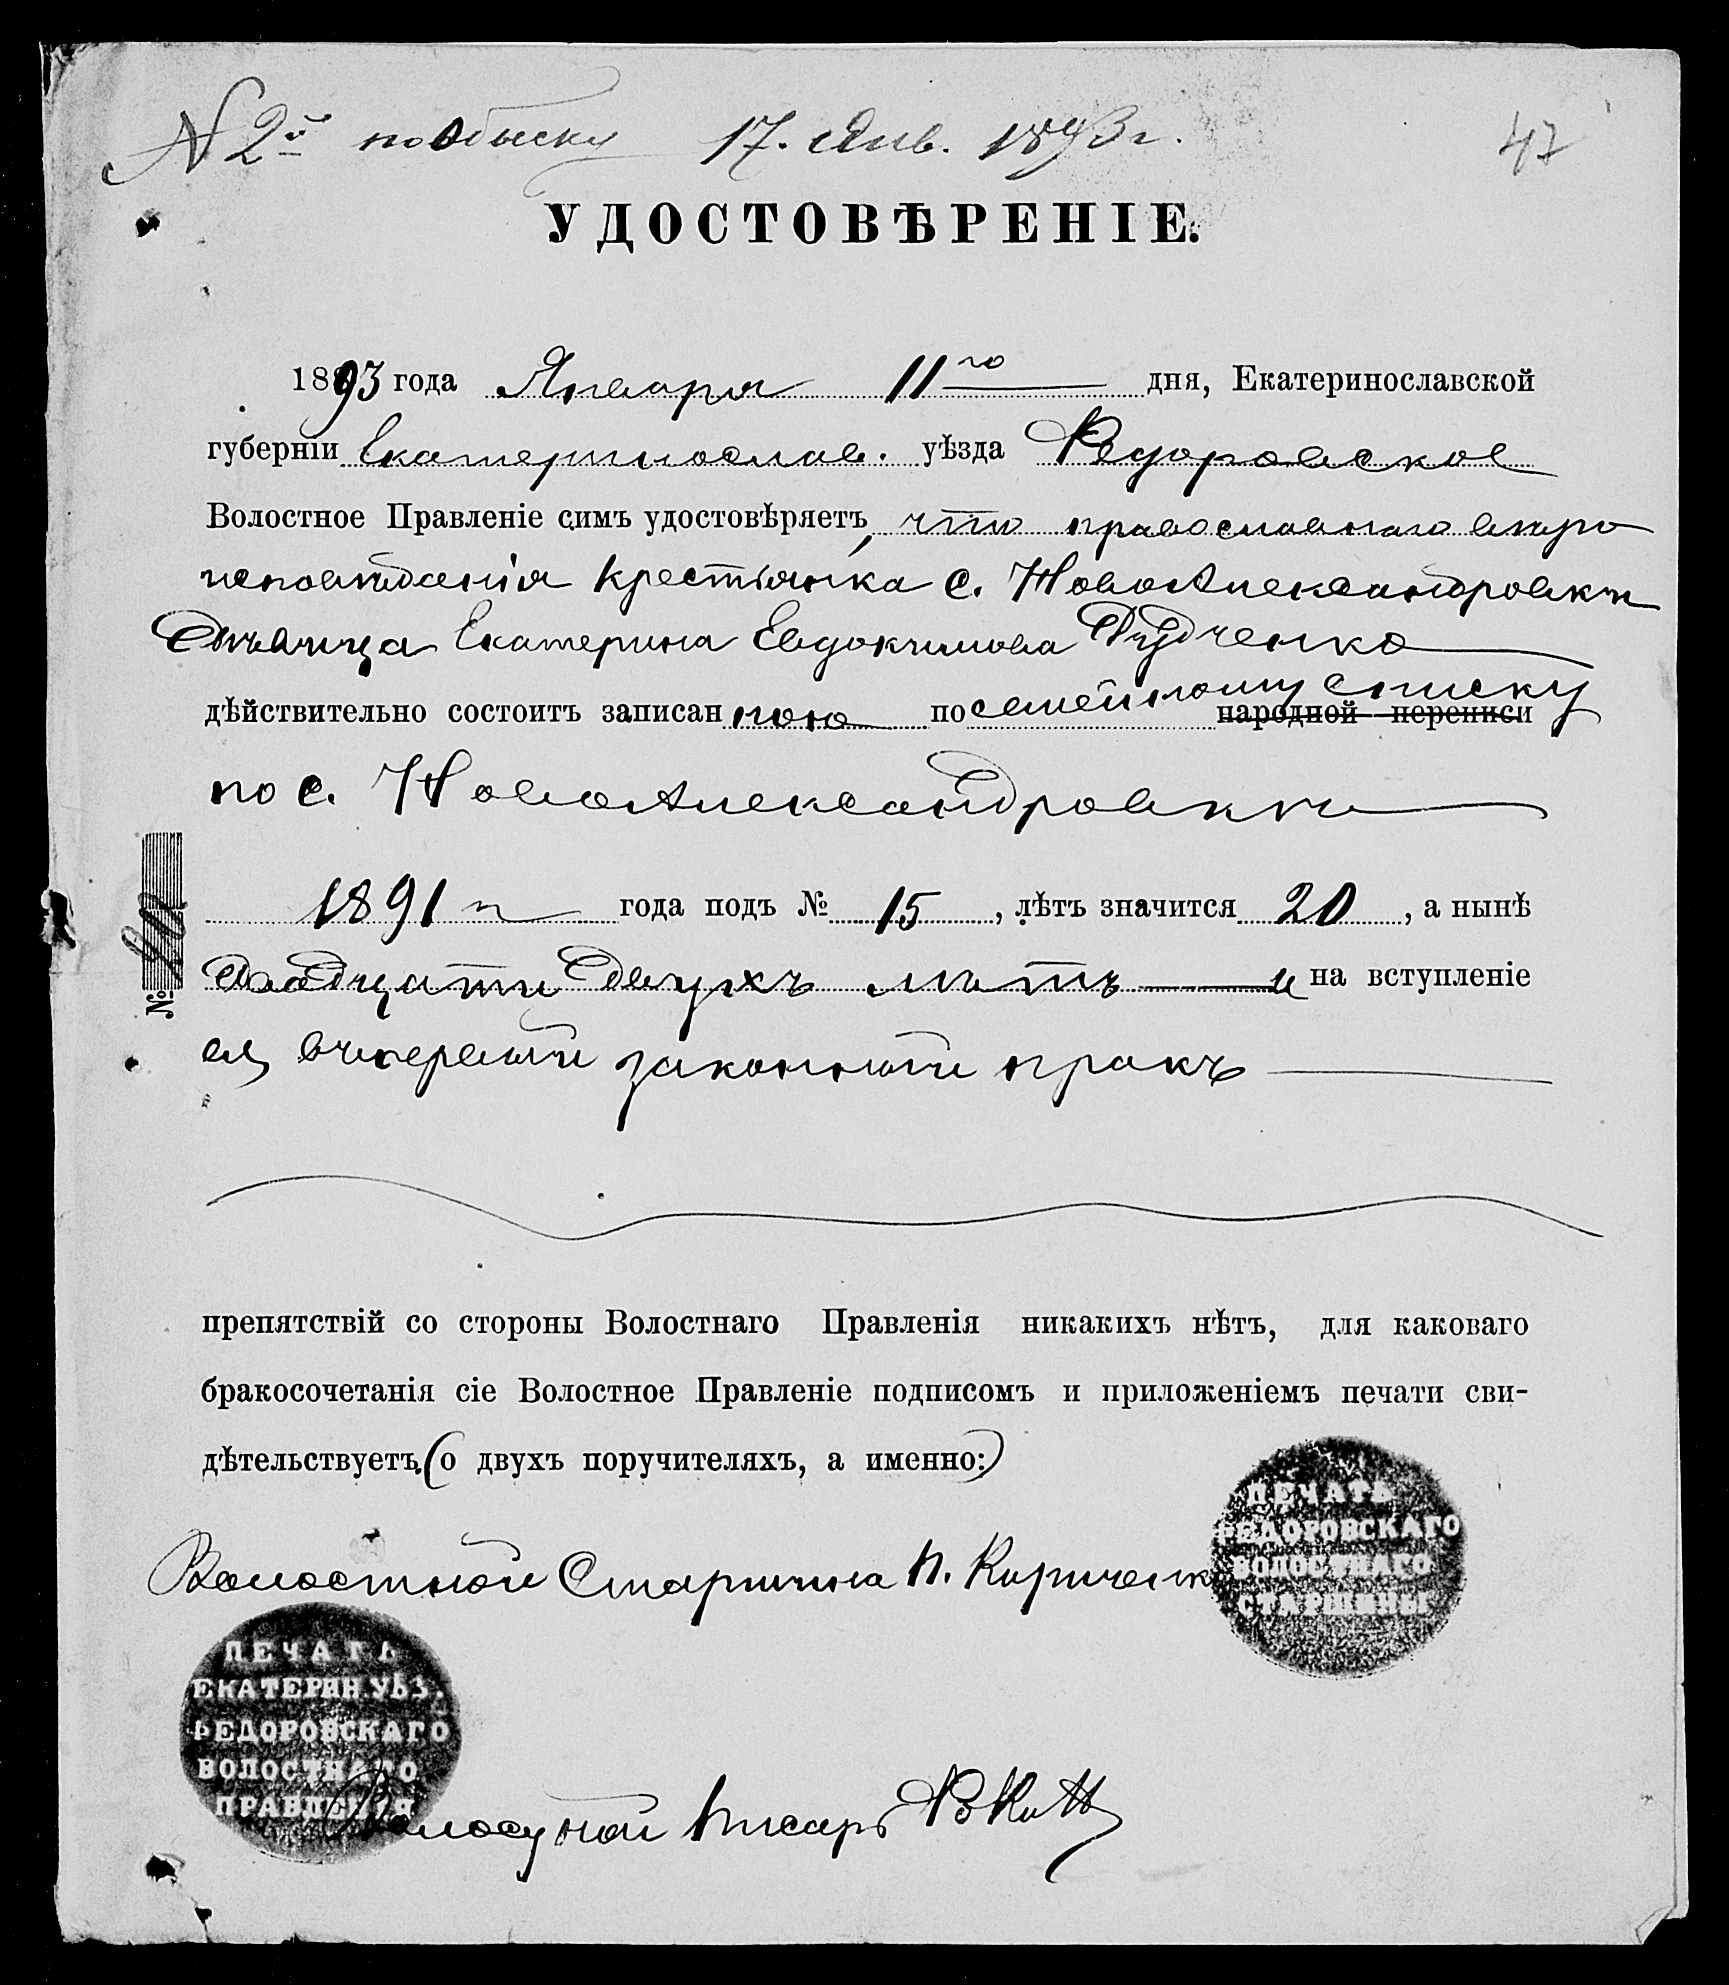 № 2й по обыску 17. Янв. 1893 г. 47
УДОСТОВѢРЕНІЕ.
1893 года Января 11го дня, Екатеринославской
губерніи Екатеринослав. уѣзда Федоровское
Волостное Правленіе симъ удостовѣряетъ, что православнаго вѣро
исповѣданія крестьянка с. НовоАлександровки
дѣвица Екатерина Евдокимова Дудченко
дѣйствительно состоитъ записанною по семейному списку народной переписи
по с. НовоАлександровки
1891 г. года подъ № 15, лѣтъ значится 20, а нынѣ
двадцати двухъ лѣтъ и на вступленіе
ея въ первый законный бракъ
№
препятствій со стороны Волостнаго Правленія никакихъ нѣтъ, для каковаго
бракосочетанія сіе Волостное Правленіе подписомъ и приложеніемъ печати сви-
дѣтельствуетъ (о двухъ поручителяхъ, а именно:)
Волостной Старшина П. Кириченко
ПЕЧАТЬ
ФЕДОРОВСКАГО
ВОЛОСТНАГО
СТАРШИНЫ
ПЕЧАТЬ
ЕКАТЕРИН. УѢЗ.
ФЕДОРОВСКАГО
ВОЛОСТНАГО
ПРАВЛЕНІЯ
Волостной Писарь